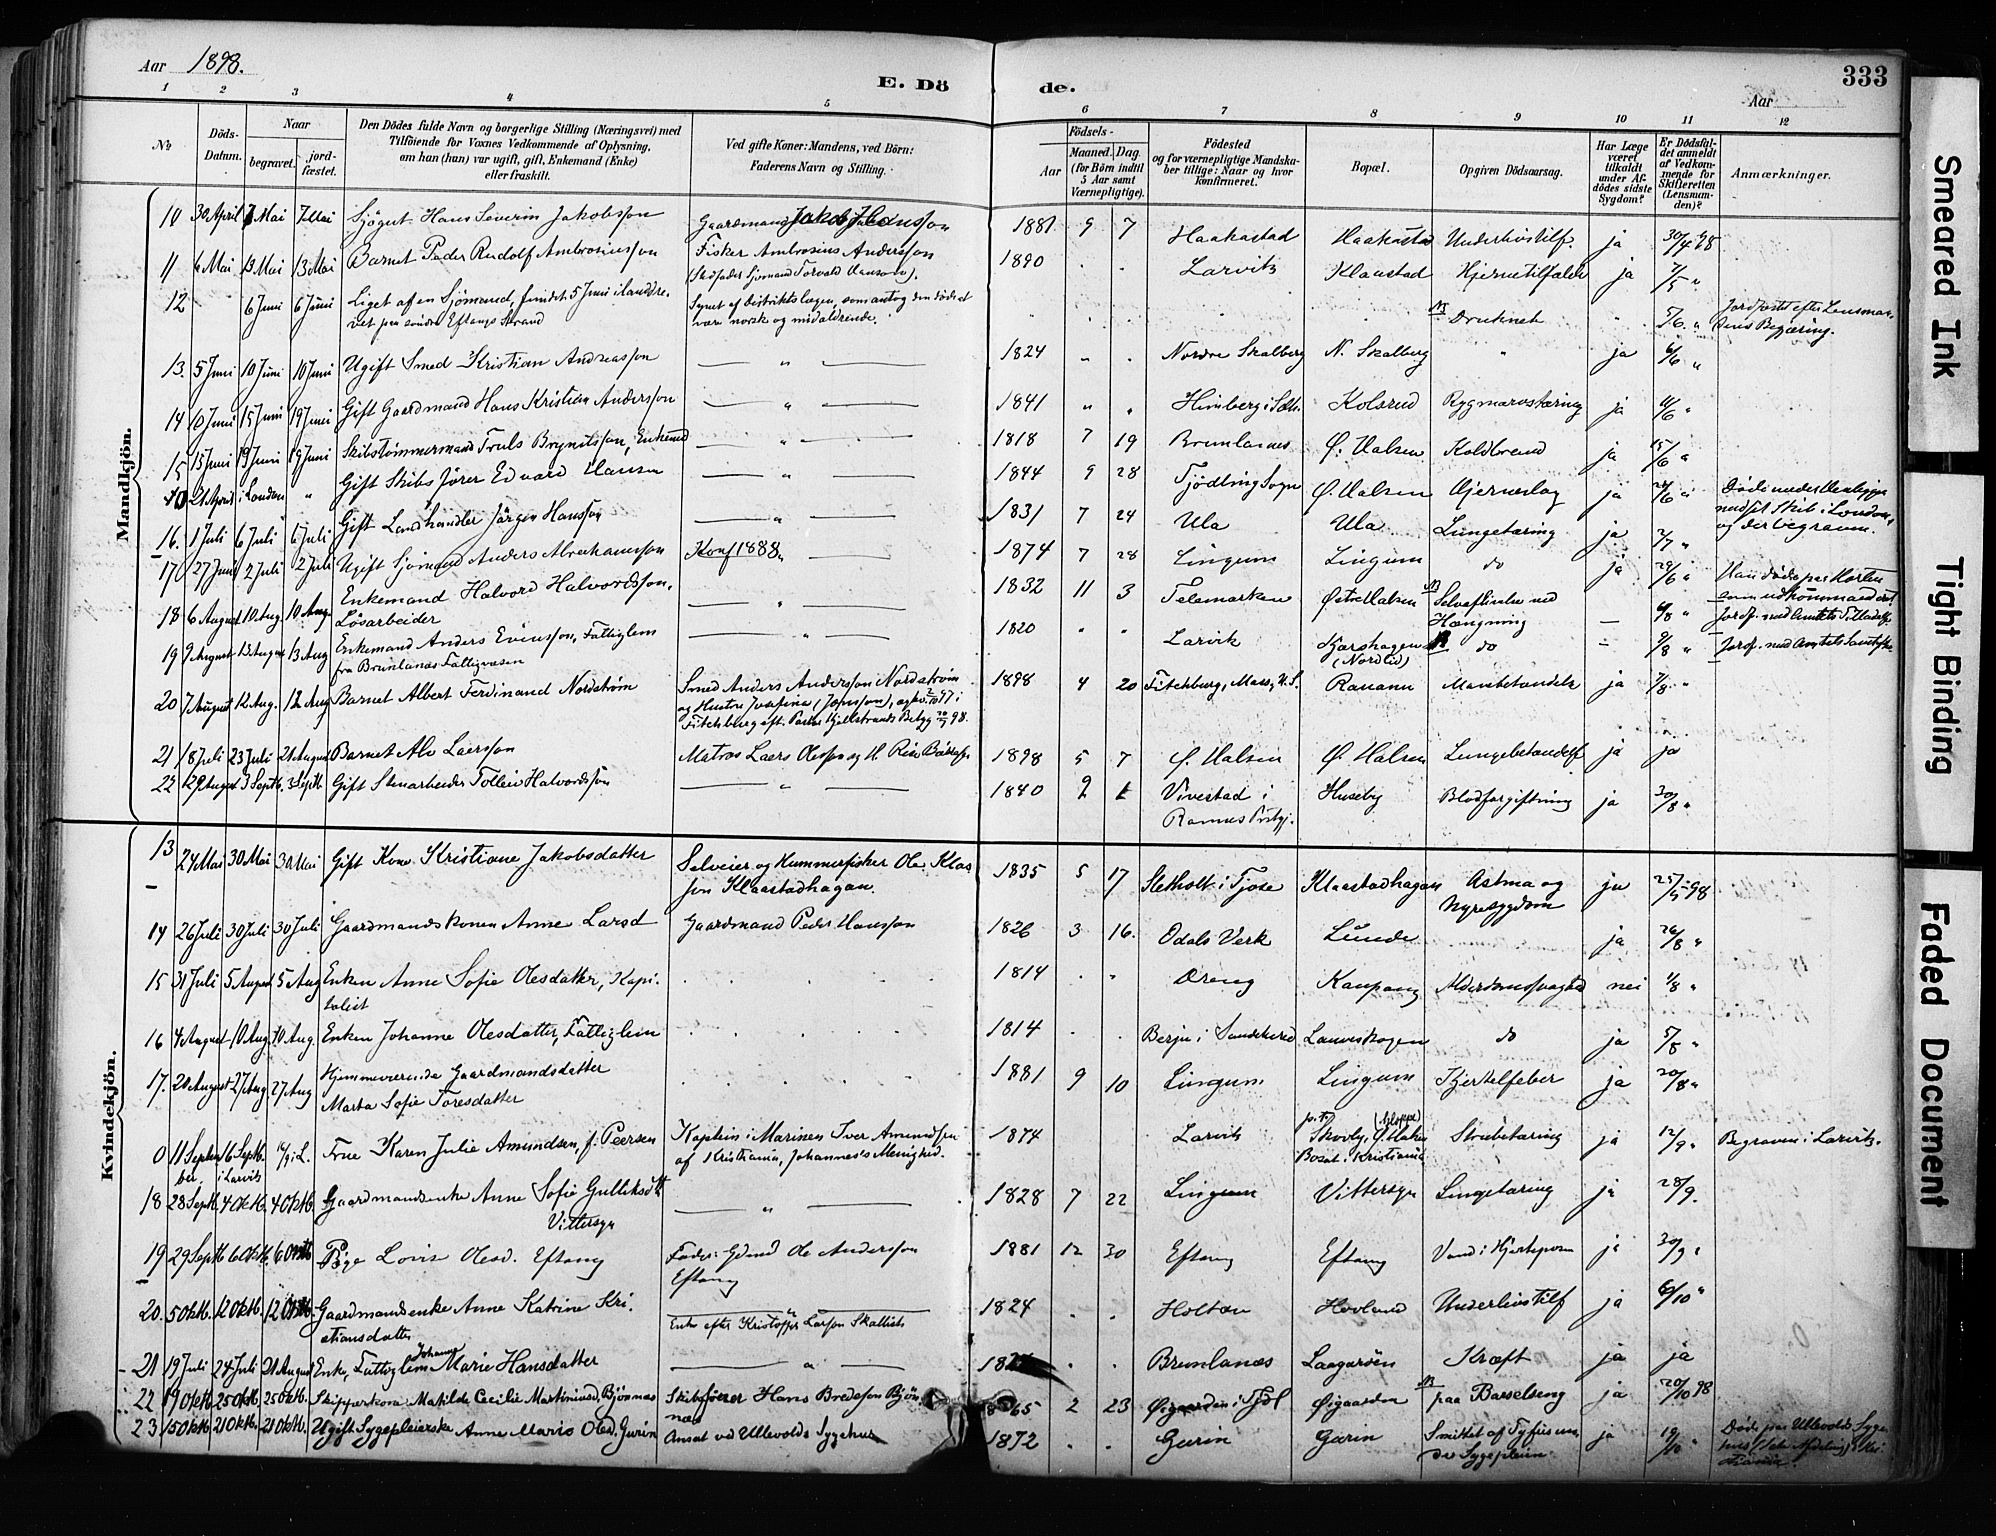 Aar 1898.
E. Döde.
Aar
333
1 2 3 4 5 6 7 8 9 10 11 12
№
Döds-Datum.
Naar
begravet.
jordfæstet.
Den Dödes fulde Navn og borgerlige Stilling (Næringsvei) med
Tilföiende for Voxnes Vedkommende af Oplysning,
om han (hun) var ugift, gift, Enkemand (Enke)
eller fraskilt.
Ved gifte Koner: Mandens, ved Börn:
Faderens Navn og Stilling.
Födsels-
Aar
Maaned. Dag.
(for Börn indtil
5 Aar samt
Værnepligtige).
Födested
og for værnepligtige Mandskaber tillige: Naar og hvor
konfirmeret.
Bopæl.
Opgiven Dödsaarsag.
Har Læge været tilkaldt under Afdödes sidste Sygdom?
Er Dödsfaldet anmeldt af Vedkommende for Skifteretten (Lensmanden)?
Anmærkninger.
Mandkjön.
10 30 April 7 Mai 7 Mai Sjögut Hans Severin Jakobsson Gaardmand Jakob Hansson 1881 9 7 Haakastad Haakastad Underlivstilf. ja 30/4 98
11 6 Mai 13 Mai 13 Mai Barnet Peder Rudolf Ambrosiusson Fisker Ambrosius Andersson 1890 Larvik Klaastad Hjernetilfælde ja 7/5 "
(Stedfader Sjömand Torvald Hansson).
12 6 Juni 6 Juni Liget af en Sjömand, fundet 5 Juni ilanddrevet paa søndre Eftangs Strand Synet af Distriktslægen, som antog den døde at være norsk og midaldrende. Druknet 5/6 " Jordfæstet efter Lensmandens Begjæring.
13. 5 Juni 10 Juni 10 Juni Ugift Smed Kristian Andreasson " 1824 " Nordre Skalberg N. Skalberg " ja 6/6 "
14 10 Juni 15 Juni 19 Juni Gift Gaardmand Hans Kristian Andersson " 1841 " " Himberg i Kolsrud Rygmarvstæring ja 11/6 "
15 15 Juni 19 Juni 19 Juni Skibstømmermand Truls Bryntsson, Enkemand " 1818 7 19 Brunlanes Ø. Halsen Koldbrand ja 15/6 "
0 21 April i London " Gift Skibsfører Edvard Hansen " 1844 9 28 Tjödling Sogn Ø. Halsen Hjerneslag ja Døde under Henligge med sit Skib i London, og der begraven.
16. 1 Juli 6 Juli 6 Juli Gift Landhandler Jörgen Hansson " 1831 7 24 Ula Ula Lungetæring ja 2/7 "
17 27 Juni 2 Juli 2 Juli Ugift Sjömand Anders Abrahamsson Konf 1888. 1874 7 28 Lingum Lingum do ja 29/6 " Han døde paa Horten som udkommanderet
18 6 August 10 Aug 10. Aug. Enkemand Halvord Halvordsson. Løsarbeider " 1832 11 3 Telemarken Østre Halsen Selvaflivelse ved Hængning — 6/8 " Jordf. med Amtets Tilladelse
19 9 August 13 August 13 Aug Enkemand Anders Evensson, Fattiglem fra Brunlanæs Fattigvæsen " 1820 " " Larvik Kjærshagen (Nordlid) do 9/8 " Jordf. med Amtets Samtykke
20 7 August 12 Aug. 12 Aug Barnet Albert Ferdinand Nordstrøm Smed Anders Andersson Nordström og Hustru Josefina (Jonsson), i Fitchburg eft. Pastor Kjellstrands Betyg 98. 1898 4 20 Fitchburg, Mass., U.S. Ravann Mavebetændels ja 7/8 "
21 18 Juli 23 Juli 21 August Barnet Alv Laersson Matros Laers Olesson og H. 1898 5 7 Ø. Halsen Ø. Halsen Lungebetændels ja ja
22 29 August 3 Septb. 3 Septb. Gift Stenarbeider Tollev Halvordssön " 1840 2 1 Vivestad i Ramnes Prstgj. Huseby Blodforgiftning ja 30/8 "
Kvindekjön.
13 24 Mai 30 Mai 30 Mai Gift Kone Kristiane Jakobsdatter Selveier og Hummerfisker Ole Klasson Klaastadhagan. 1835 5 17 Sletholt i Tjose Klaastadhagan Astma og Nyresygdom ja 25/5 98
14 26 Juli 30 Juli 30 Juli Gaardmandskonen Anne Larsd Gaardmand Peder Hansson 1826 3 16. Odals Verk Lunde ja 26/8 "
15 31 Juli 5 August 5 Aug Enken Anne Sofie Olesdatter, Kapitalist 1814 Dreng Kaupang Alderdomssvaghed nei 1/8 "
16 4 August 10 Aug. 10 Aug. Enken Johanne Olesdatter, Fattiglem 1814 Berje i Sandeherred Lauveskogen do ja 5/8 "
17. 20 August 27 Aug 27 Aug Hjemmeværende Gaardmandsdatter Marta Sofie Toresdatter 1881 9 10 Lingum Lingum Kjertelfeber ja 20/8 "
0 11 September 16 Septb. i Larvik 16/9 i L. Frue Karen Julie Amundsen, f. Peersen Kaptein i Marinen Iver Amundsen af Kristiania, Johannes's Menighed. 1874 Larvik Skovly, Ø. Halsen Bosat i Kristiania Strubetæring ja 12/9 " Begraven i Larvik.
18 23 Septb. 4 Oktb. 4 Oktb. Gaardmandsenke Anne Sofie Gulliksdtr Vittersyn " 1828 7 22 Lingum Vittersyn Lungetæring ja 28/9.
19 29 Septb 6 Oktb. 6 Oktb Pige Lovis Olesd. Eftang Fader: Gdmd Ole Andersson Eftang 1881 12 30 Eftang Eftang Vand i Hjerteposen ja 30/9 "
20. 5 Oktb. 12 Oktb. 12 Oktb. Gaardmandsenke Anne Katrine Kristiansdatter Enke efter Kristoffer Larsson Skallist 1824 Holtan Hovland Underlivstilf ja 6/10 "
21 19 Juli 24 Juli 21 August Enke, Fattiglem Johanne Marie Hansdatter " Brunlanæs Laagarøen Kræft ja ja
22 19 Oktb. 25 Oktb. 25 Oktb. Skipperkona Matilde Cecilie Martiniusd. Bjönnæs Skibsfører Hans Bredesson Bjönnæs 1865 2 23 Øigaarden i Tjöl Øigaarden paa Barselseng ja 20/10 98
23 15 Oktb. 21 Oktb. 21 Oktb. Ugift Sygepleierske Anne Marie Olesd. Gurin Ansat ved Ullevolds Sygehus 1872 Gurin Gurin Smittet af Tyfus under Sygepleien ja 19/10 " Døde paa Ullevolds Sygehus i Kristiania.
Smeared Ink
Tight Binding
Faded Document